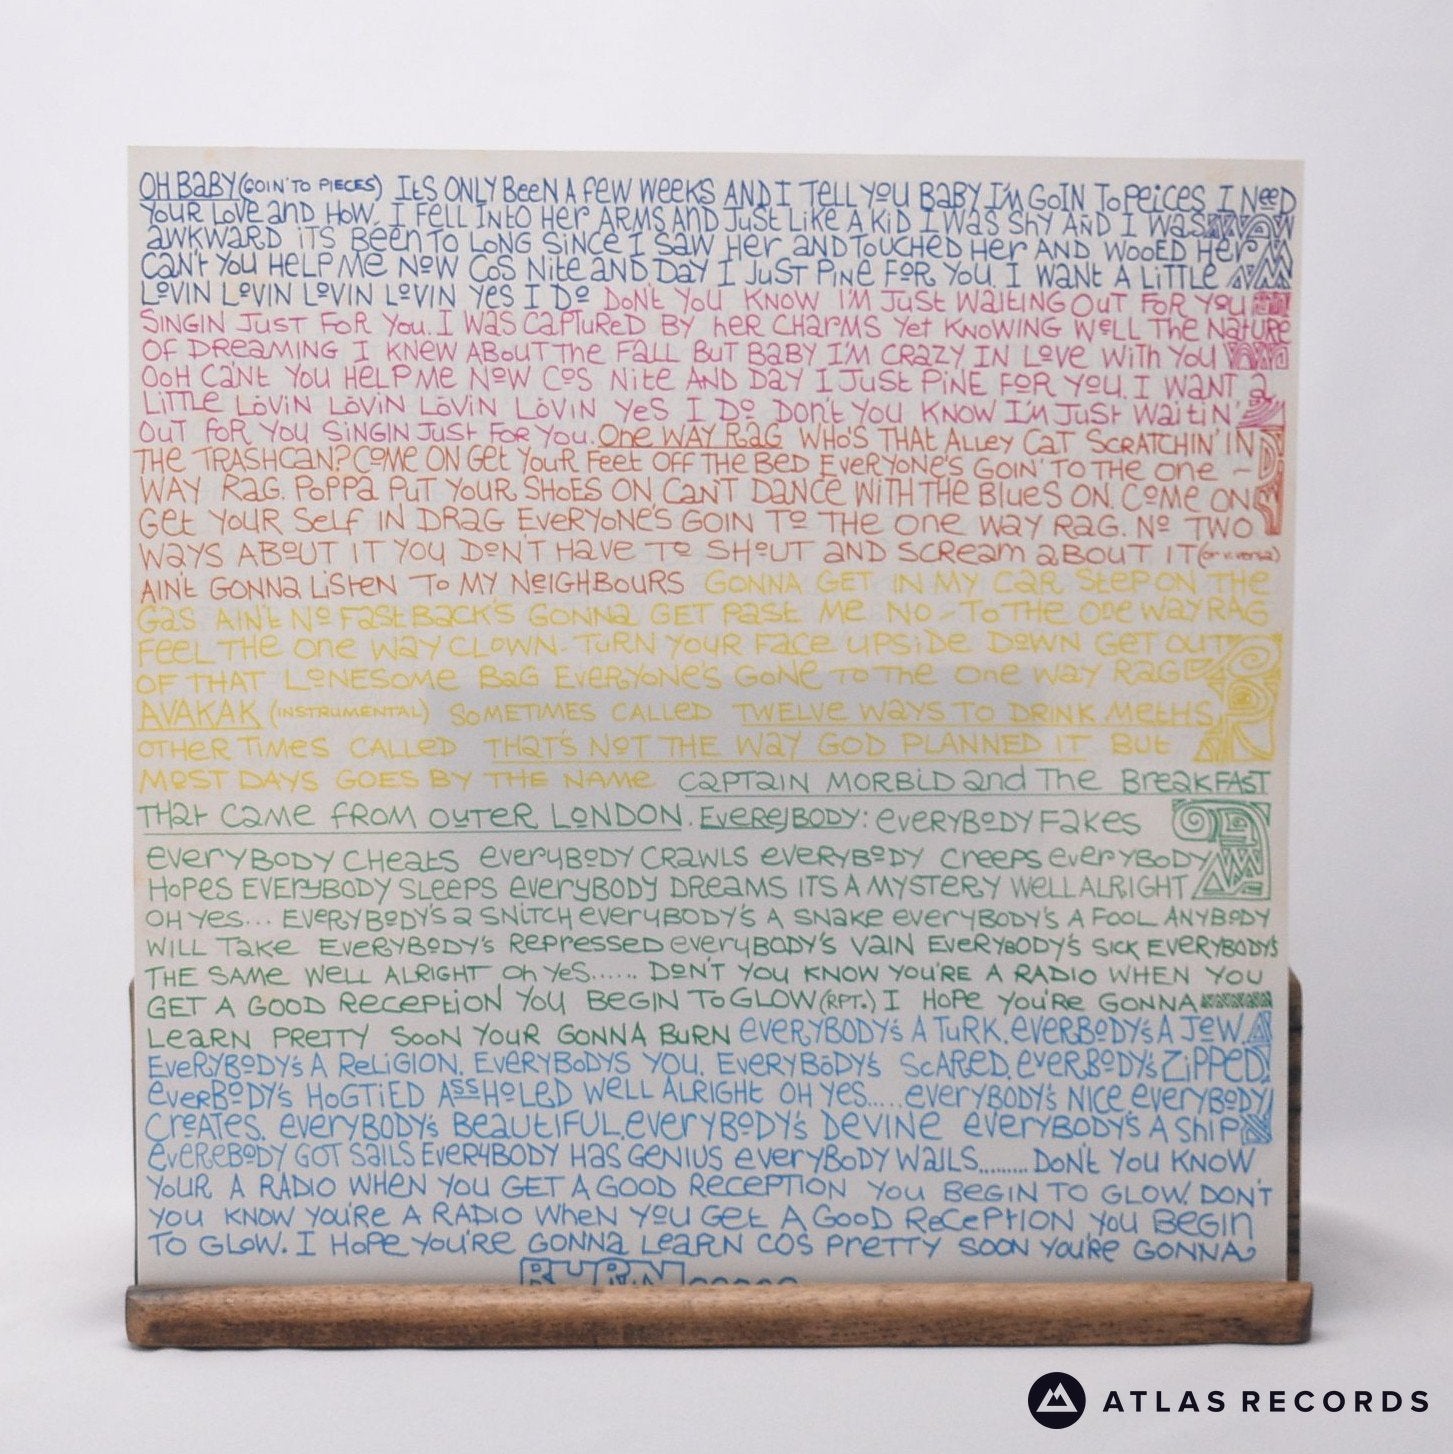 OH BABY (GOIN' TO PIECES) ITS ONLY BEEN A FEW WEEKS AND I TELL YOU BABY I'M GOIN TO PEICES I NEED
YOUR LOVE AND HOW. I FELL INTO HER ARMS AND JUST LIKE A KID I WAS SHY AND I WAS
AWKWARD ITS BEEN TO LONG SINCE I SAW HER AND TOUCHED HER AND WOOED HER
CAN'T YOU HELP ME NOW COS NITE AND DAY I JUST PINE FOR YOU. I WANT A LITTLE
LOVIN LOVIN LOVIN LOVIN YES I DO DON'T YOU KNOW I'M JUST WAITING OUT FOR YOU
SINGIN JUST FOR YOU. I WAS CAPTURED BY HER CHARMS YET KNOWING WELL THE NATURE
OF DREAMING I KNEW ABOUT THE FALL BUT BABY I'M CRAZY IN LOVE WITH YOU
OOH CA'NT YOU HELP ME NOW COS NITE AND DAY I JUST PINE FOR YOU. I WANT A
LITTLE LOVIN LOVIN LOVIN LOVIN YES I DO DON'T YOU KNOW I'M JUST WAITIN'
OUT FOR YOU SINGIN JUST FOR YOU. ONE WAY RAG WHO'S THAT ALLEY CAT SCRATCHIN' IN
THE TRASHCAN? COME ON GET YOUR FEET OFF THE BED EVERYONE'S GOIN' TO THE ONE -
WAY RAG. POPPA PUT YOUR SHOES ON CAN'T DANCE WITH THE BLUES ON. COME ON
GET YOUR SELF IN DRAG EVERYONE'S GOIN TO THE ONE WAY RAG. NO TWO
WAYS ABOUT IT YOU DON'T HAVE TO SHOUT AND SCREAM ABOUT IT (or v. versa)
AIN'T GONNA LISTEN TO MY NEIGHBOURS GONNA GET IN MY CAR STEP ON THE
GAS AIN'T NO FASTBACK'S GONNA GET PAST ME NO - TO THE ONE WAY RAG
FEEL THE ONE WAY CLOWN. TURN YOUR FACE UPSIDE DOWN GET OUT
OF THAT LONESOME BAG EVERYONE'S GONE TO THE ONE WAY RAG
AVAKAK (INSTRUMENTAL) SOMETIMES CALLED TWELVE WAYS TO DRINK METHS,
OTHER TIMES CALLED THAT'S NOT THE WAY GOD PLANNED IT BUT
MOST DAYS GOES BY THE NAME CAPTAIN MORBID AND THE BREAKFAST
THAT CAME FROM OUTER LONDON. EVEREJBODY: EVERYBODY FAKES
EVERYBODY CHEATS EVERYBODY CRAWLS EVERYBODY CREEPS EVERYBODY
HOPES EVERYBODY SLEEPS EVERYBODY DREAMS ITS A MYSTERY WELL ALRIGHT
OH YES... EVERYBODY'S A SNITCH EVERYBODY'S A SNAKE EVERYBODY'S A FOOL ANYBODY
WILL TAKE EVERYBODY'S REPRESSED EVERYBODY'S VAIN EVERYBODY'S SICK EVERYBODY'S
THE SAME WELL ALRIGHT OH YES...... DON'T YOU KNOW YOU'RE A RADIO WHEN YOU
GET A GOOD RECEPTION YOU BEGIN TO GLOW (RPT.) I HOPE YOU'RE GONNA
LEARN PRETTY SOON YOUR GONNA BURN EVERYBODY'S A TURK. EVERBODY'S A JEW.
EVERYBODY'S A RELIGION. EVERYBODYS YOU. EVERYBODY'S SCARED. EVERBODY'S ZIPPED.
EVERBODY'S HOGTIED ASSHOLED WELL ALRIGHT OH YES..... EVERYBODY'S NICE EVERYBODY
CREATES. EVERYBODY'S BEAUTIFUL. EVERYBODY'S DEVINE EVERYBODY'S A SHIP
EVEREBODY GOT SAILS EVERYBODY HAS GENIUS EVERYBODY WAILS......... DON'T YOU KNOW
YOUR A RADIO WHEN YOU GET A GOOD RECEPTION YOU BEGIN TO GLOW. DON'T
YOU KNOW YOU'RE A RADIO WHEN YOU GET A GOOD RECEPTION YOU BEGIN
TO GLOW. I HOPE YOU'RE GONNA LEARN COS PRETTY SOON YOU'RE GONNA
BURN......
ATLAS RECORDS